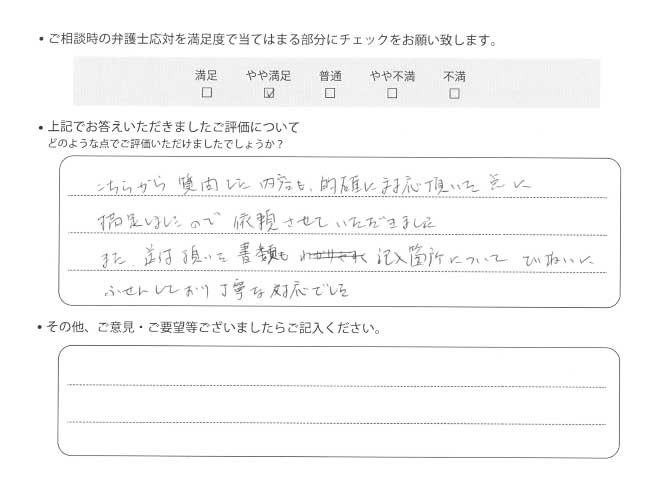 • ご相談時の弁護士応対を満足度で当てはまる部分にチェックをお願い致します。
満足 やや満足 普通 やや不満 不満
□ ☑ □ □ □
• 上記でお答えいただきましたご評価について
どのような点でご評価いただけましたでしょうか？
こちらから 質問した 内容も、的確に対応頂いた 点に
満足しましたので 依頼させていただきました
また 送付頂いた 書類も 記入箇所について ていねいに
ふせんしており 丁寧な対応でした
• その他、ご意見・ご要望等ございましたらご記入ください。